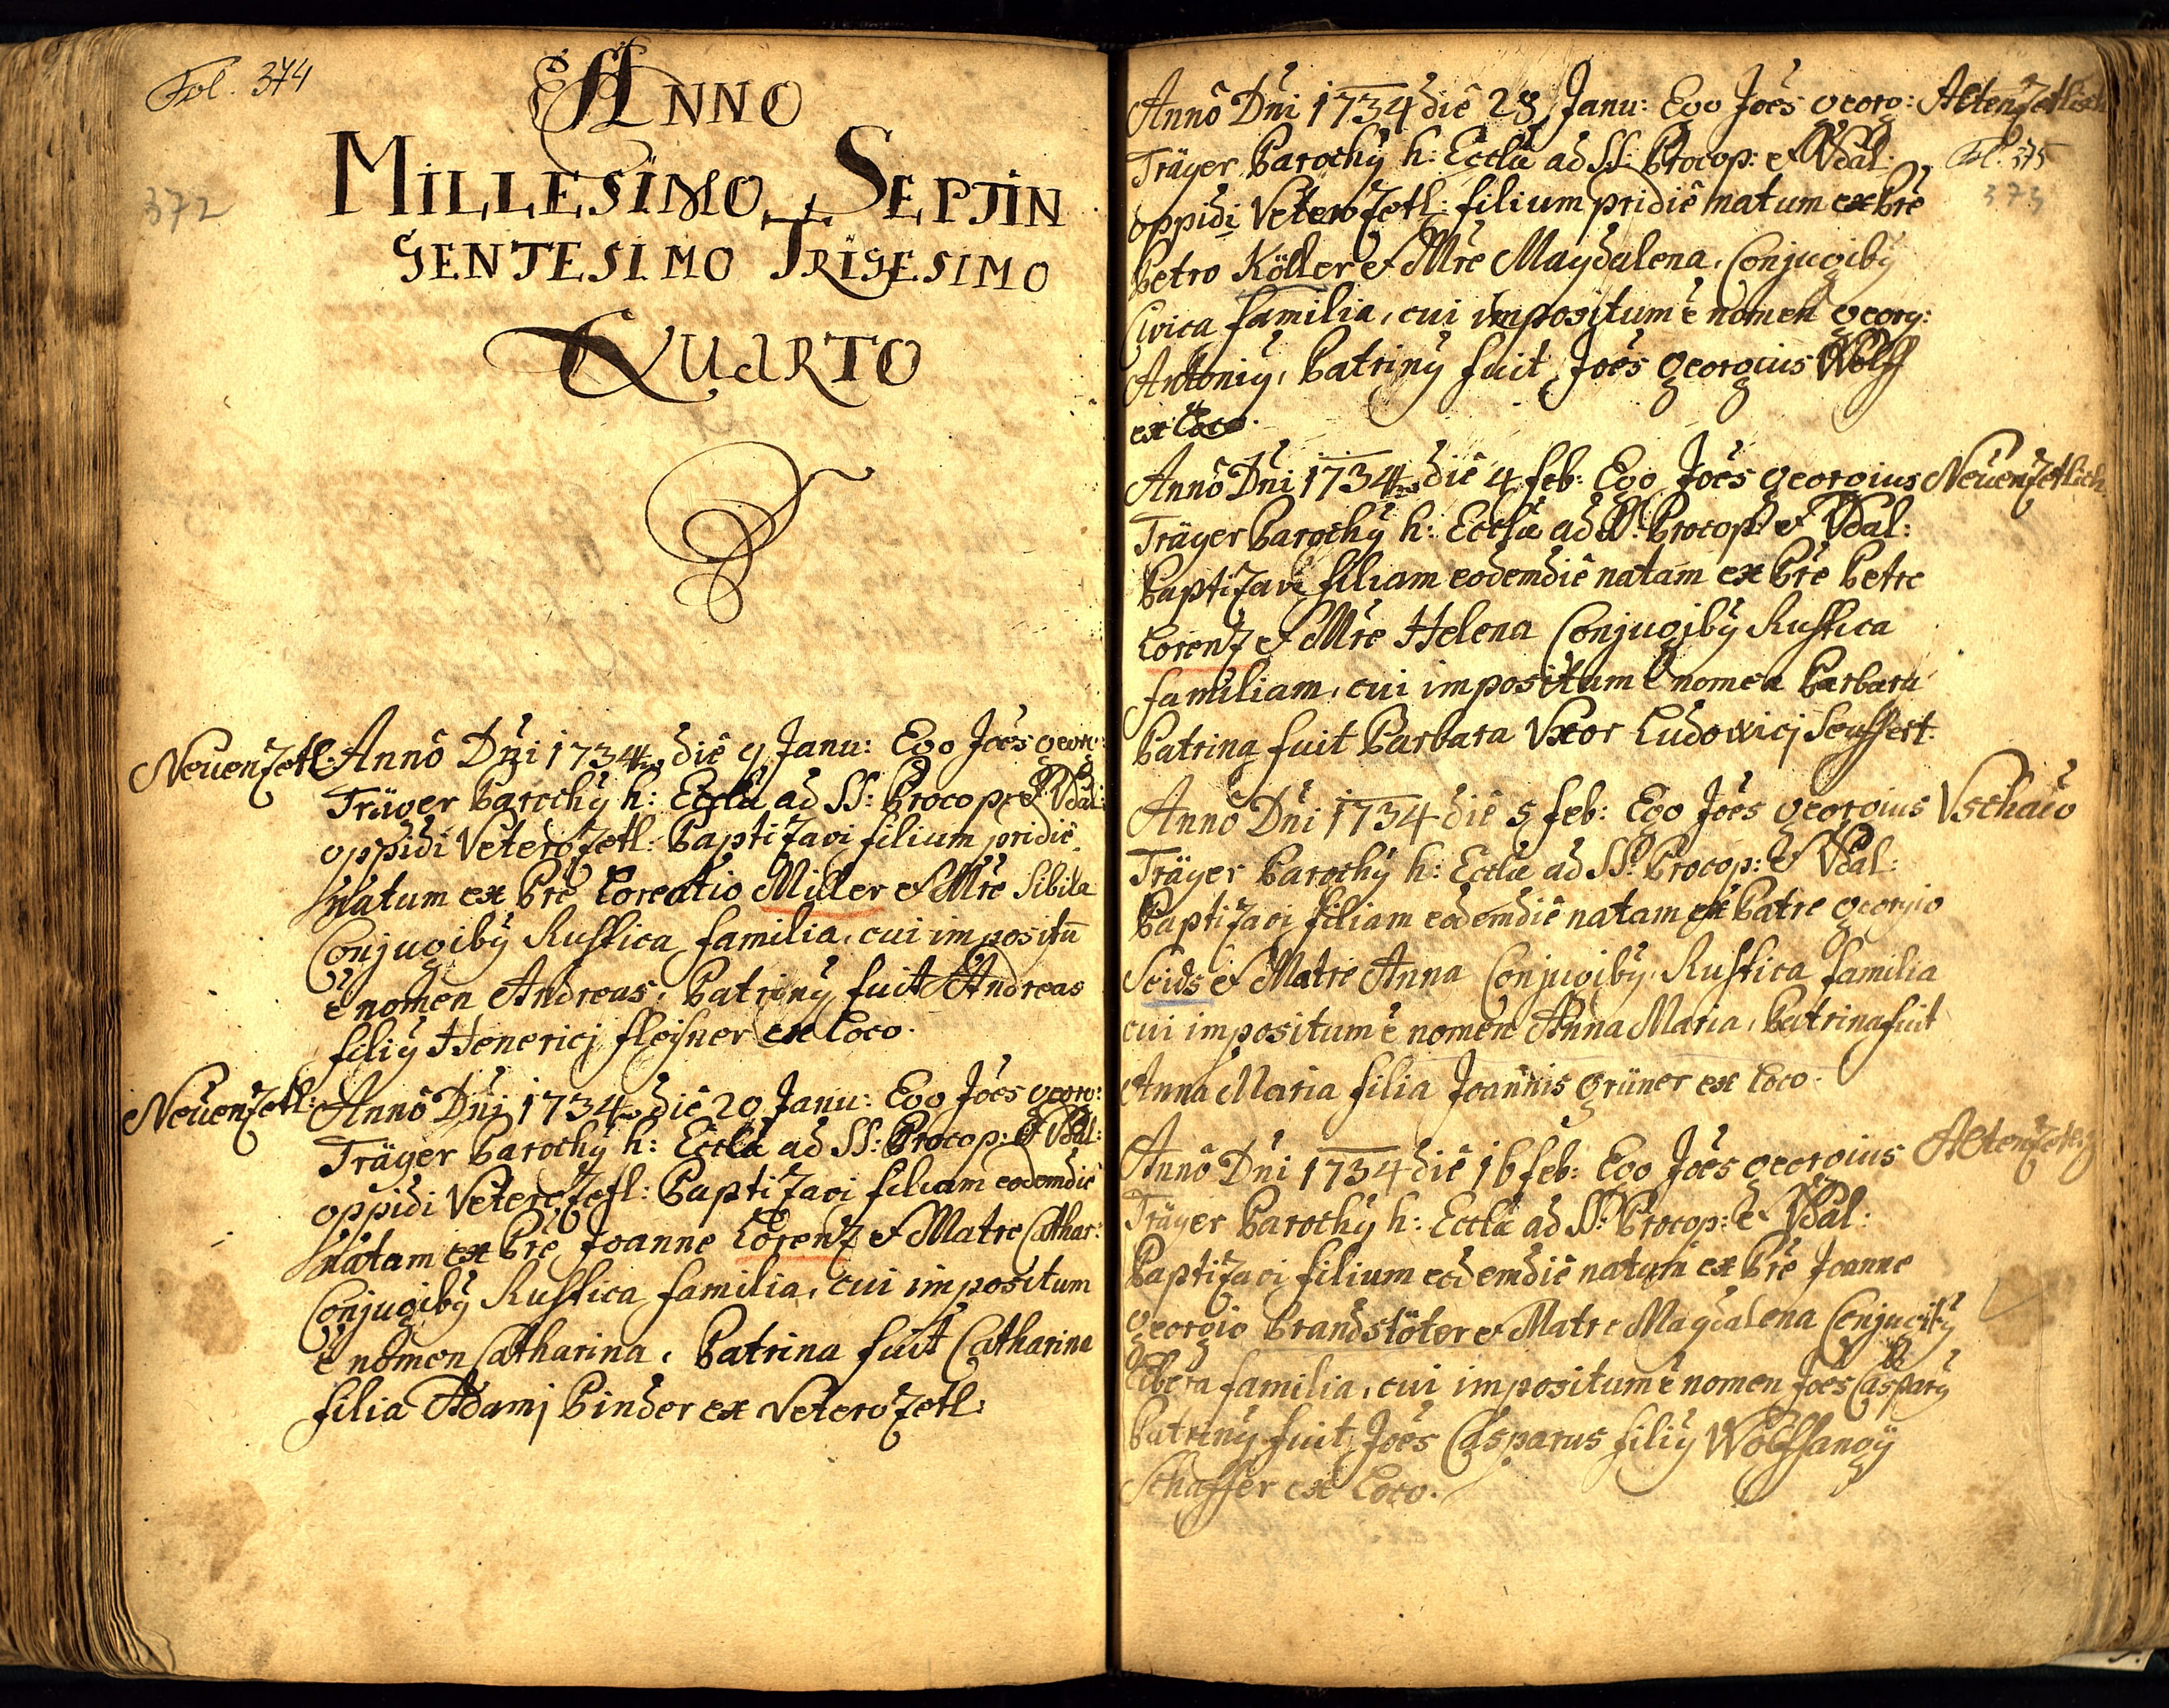 Fol. 374
372
ANNO
MILLESIMO SEPTIN
GENTESIMO TRIGESIMO
QUARTO
Neüenzetl: Annô Dni 1734 diê 9 Janu: Ego Joês georg:
Träger Parochÿ h: Eccła ad SS: Procop: & Vdal:
oppidi Veterozetl: Baptizavi filium pridiê
natum ex Prê Miller & Mrê Sibila
Conjugibÿ Rustica familia, cui impositū
ê nomen Andreas, Patrinÿ fuit Andreas
filiÿ Henericj fleisner ex Loco.
Neüenzetl: Annô Dni 1734 diê 20 Janu: Ego Joês georg:
Träger Parochÿ h: Eccła ad SS: Procop: & Vdal:
oppidi Veterozetl: Baptizavi filiam eodemdiê
natam ex Prê Joanne Lorenz & Matre Cathar:
Conjugibÿ Rustica familia, cui impositum
ê nomen Catharina, Patrina fuit Catharina
filia Adamj Binder ex Veterozetl:
Annô Dni 1734 diê 28 Janu: Ego Joês georg: Altenzetlisch
Träger Parochÿ h: Eccła ad SS: Procop: & Vdal: Fol. 375
373
oppidi Veterozetl: filium pridiê natum ex Prê
Petro Köller & Mrê Magdalena, Conjugibÿ
Civica familia, cui impositum ê nomen georg:
Antoniÿ, Patrinÿ fuit Joês georgius Wolff
ex Loco.
Annô Dni 1734 diê 4 feb: Ego Joês georgius Neüenzetlich
Träger Parochÿ h: Eccła ad SS: Procop: & Vdal:
Baptizavi filiam eodemdiê natam ex Prê Petro
Lorenz & Mrê Helena Conjugibÿ Rustica
familiam, cui impositum ê nomen Barbara
Patrina fuit Barbara Vxor Ludowicj Seuffert.
Annô Dni 1734 diê 5 feb: Ego Joês georgius Vschaŭ
Träger Parochÿ h: Eccła ad SS: Procop: & Vdal:
Baptizavi filiam eodemdiê natam ex Patre georgio
Seids & Matre Anna Conjugibÿ Rustica familia
cui impositum ê nomen Anna Maria, Patrina fuit
Anna Maria filia Joannis grüner ex Loco.
Annô Dni 1734 diê 16 feb: Ego Joês georgius
Träger Parochÿ h: Eccła ad SS: Procop: & Vdal:
Baptizavi filium eodemdiê natum ex Prê Joanne
georgio Brandstöter & Matre Magdalena Conjugibÿ
Libera familia, cui impositum ê nomen Joês Casparÿ
Patrinÿ fuit Joês Casparus filiÿ Wolffgangÿ
Schaffer ex Loco.